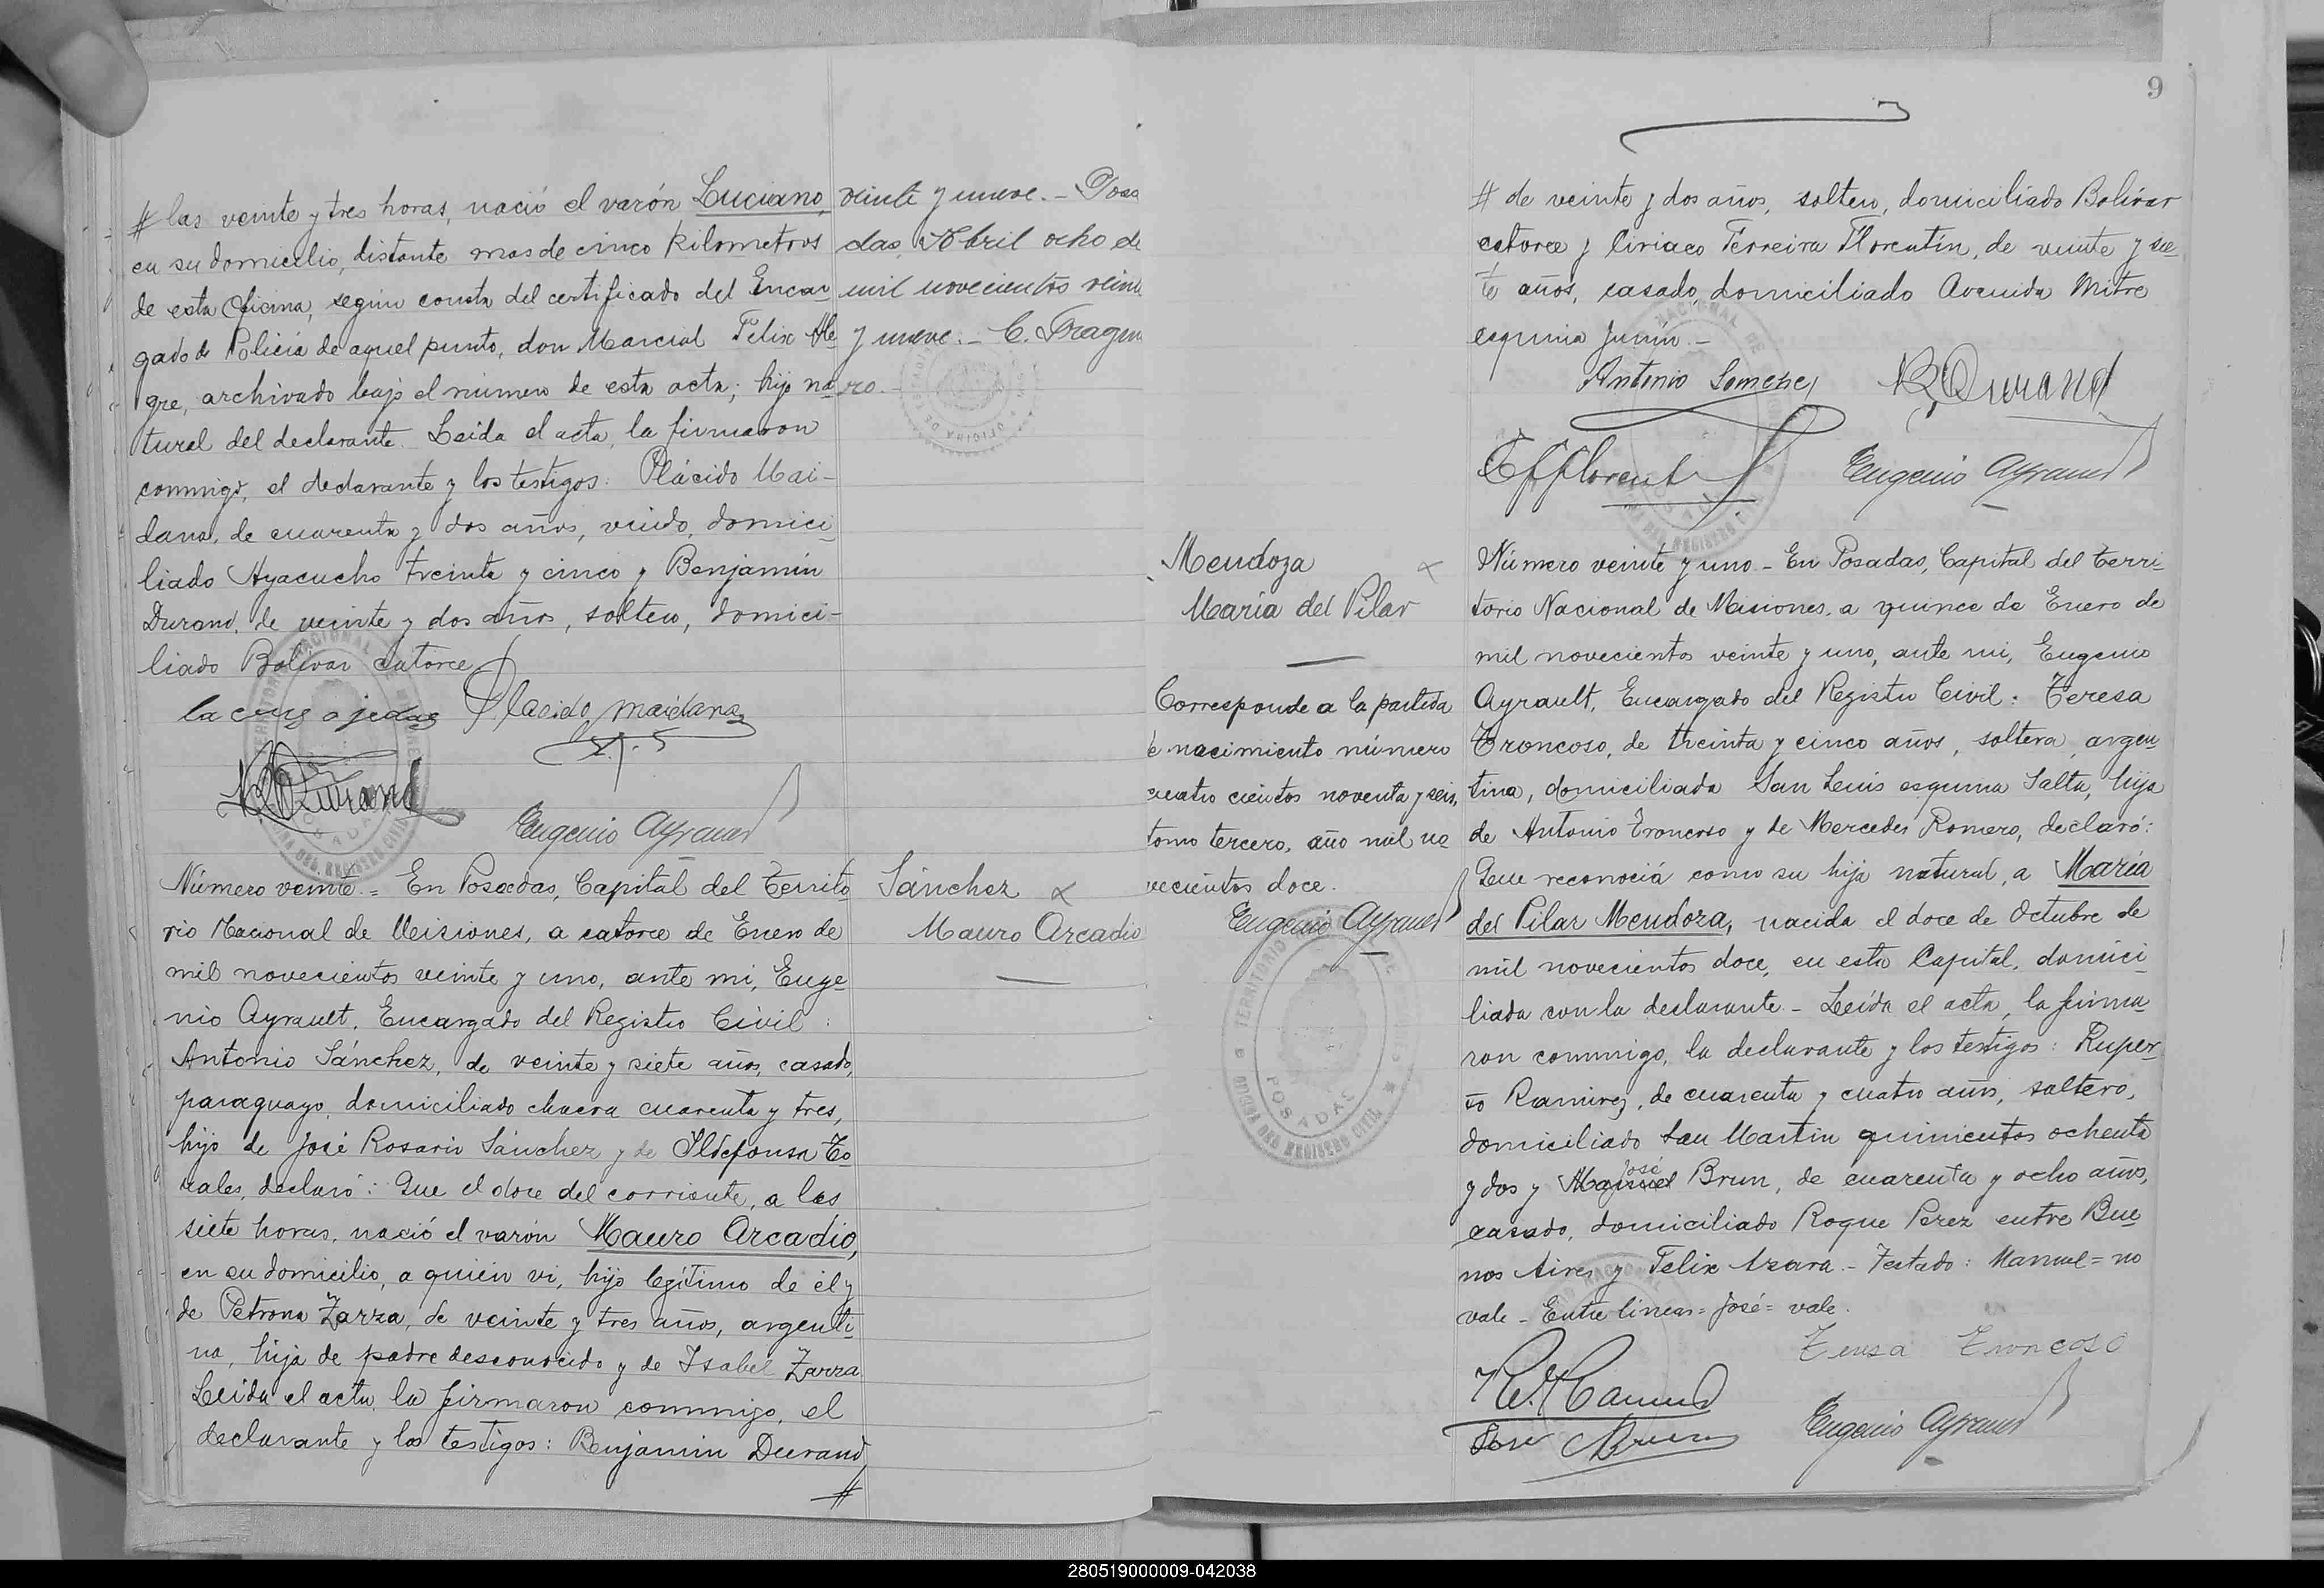 # las veinte y tres horas, nació el varón Luciano,
en su domicilio, distante mas de cinco kilometros
de esta Oficina, según consta del certificado del Encar
gado de Policía de aquel punto, don Marcial Felix Ale
gre, archivado bajo el número de esta acta; hijo na
tural del declarante. Leida el acta, la firmaron
conmigo, el declarante y los testigos: Plácido Mai-
dana, de cuarenta y dos años, viudo, domici
liado Ayacucho treinta y cinco y Benjamín
Durand, de veinte y dos años, soltero, domici-
liado Bolivar catorce
la cruz ojedas Placido maidana
B Durand
Eugenio Ayrault
veinte y nueve. - Posa
das, Abril ocho de
mil novecientos veinte
y nueve. - C. Frague
ro.
Número veinte = En Posadas, Capital del Territo
rio Nacional de Misiones, a catorce de Enero de
mil novecientos veinte y uno, ante mi, Euge
nio Ayrault, Encargado del Registro Civil:
Antonio Sánchez, de veinte y siete años, casado,
paraguayo, domiciliado chacra cuarenta y tres,
hijo de José Rosario Sánchez y de Ildefonsa
declaró: Que el doce del corriente, a las
siete horas, nació el varón Mauro Arcadio,
en su domicilio, a quien vi, hijo legítimo de él y
de Petrona Zarza, de veinte y tres años, argenti
na, hija de padre desconocido y de Isabel Zarza
Leida el acta, la firmaron conmigo, el
declarante y los testigos: Benjamin Durand,
#
Sánchez
Mauro Arcadio
9
# de veinte y dos años, soltero, domiciliado Bolívar
catorce y Ciriaco Ferreira Florentín, de veinte y sie
te años, casado, domiciliado Avenida Mitre
esquina Junín. -
Antonio Sanchez B Durand
C F Florentin Eugenio Ayrault
Mendoza
María del Pilar
Corresponde a la partida
de nacimiento número
cuatro cientos noventa y seis,
tomo tercero, año mil no
vecientos doce.
Eugenio Ayrault
TERRITORIO NACIONAL DE MISIONES
POSADAS
OFICINA DEL REGISTRO CIVIL
Número veinte y uno - En Posadas, Capital del Terri-
torio Nacional de Misiones, a quince de Enero de
mil novecientos veinte y uno, ante mi, Eugenio
Ayrault, Encargado del Registro Civil: Teresa
Troncoso, de treinta y cinco años, soltera, argen
tina, domiciliada San Luis esquina Salta, hija
de Antonio Troncoso y de Mercedes Romero, declaró:
Que reconocía como su hija natural, a María
del Pilar Mendoza, nacida el doce de Octubre de
mil novecientos doce, en esta Capital, domici
liada con la declarante - Leída el acta, la firma
ron conmigo, la declarante y los testigos: Ruper
to Ramirez, de cuarenta y cuatro años, soltero,
domiciliado San Martín quinientos ochenta
José
y dos y Manuel Brun, de cuarenta y ocho años,
casado, domiciliado Roque Perez entre Bue
nos Aires y Felix Azara. - Testado: Manuel = no
vale - Entre lineas = José = vale.
Teresa Troncoso
R. Ramirez
José Brun Eugenio Ayrault
280519000009-042038